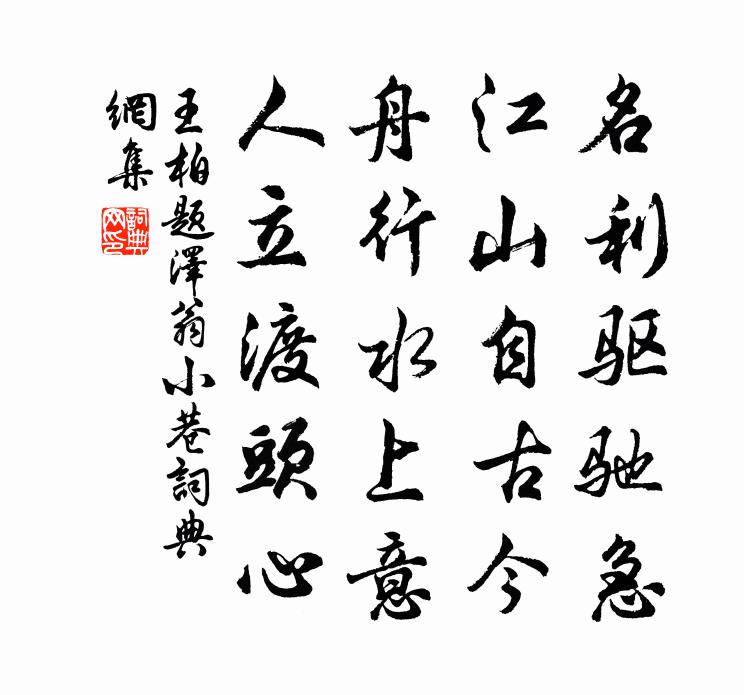 名利驱驰急
江山自古今
舟行水上意
人立渡頭心
王柏題澤翁小巷詞典
網集
詞典
网印